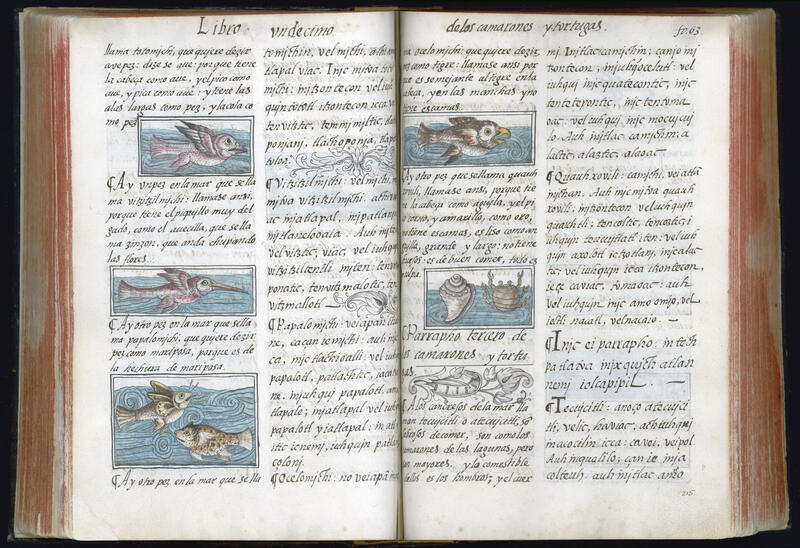 Libro undecimo
llama totomjchi, que quiere dezir
ave pez: dize se que: porque tiene
la cabeça como ave, y el pico como
ave, y pica como ave: y tiene las
alas largas como pez, y la cola co
mo pez
¶ Ay vn pez en la mar que se lla
ma vitzitzilmjchi: llamase ansi,
porque tiene el piquillo muy del
gado, como el avecilla, que se lla
ma zinzon: que anda chupando
las flores.
¶ Ay otro pez en la mar que se lla
ma papalomjchi, que quiere dezir
pez como mariposa, porque es de
la hechura de mariposa.
¶ Ay otro pez en la mar que se lla
tomjchin, vel mjchi,
tlapal viac. Injc mitva
mjchi: itzontecon vel iuh
quin tototl itzontecon icca, ve
tenvitztic, temmimiltic, tla
ponjanj, tlachoponja, tlapo
loa.
¶ Vitzitzilmjchi: vel mjchi,
mjtva vitzitzilmjchi
ac mjatlapal, injpatlanja
mjtlaneloaia. Auh mjten
vel vitztic, viac, vel iuhq
vitzitziltentli mjten: ten
ponatic, tenvitzmalotic, ten
vitzmallotl
¶ Papalomjchi: veiapan icha
ne, ca çan ie mjchi: auh mj
ca, njc tlachioalli vel iuh
papalotl, patlachtic,
ne: injuhquj papalotl,
tlapale; mjatlapal vel iuh
papalotl yiatlapal: in
itic ie nemj, iuhqujn patla
colonj.
¶ Ocelomjchi: no veiapan
de los camarones y tortugas. fo. 63.
ma ocelomjchi: que quiere dezir
pez como tigre: llamase ansi por
que es semejante al tigre en la
cabeça, y en las manchas y no
tiene escamas.
Ay otro pez que se llama quauh
xovili, llamase ansi, porque tie
ne la cabeça como aguila, y el pi
co corvo, y amarillo, como oro,
no tiene escamas, es liso como an
guilla, grande y largo: no tiene
huesos; es de buen comer, todo es
pulpa
¶ Parrapho tercero de
los camarones y tortu
gas.
A los cangrejos de la mar lla
man tecujctli o atecujctli, so
hazederos de comer, son como los
camarones de las lagunas, pero
son mayores. y lo comestible
dellos es los hombros; y el cuer
mj. Injtlac camjchin: can jo mj
tzontecon injuhq ocelutl: vel
iuhquj inquatecontic, njc
tontetepontic, njc tentvma
oac: vel iuhquj in mocujcuj
lo. Auh injtlac camjchin, a
laltic, alaztic, alaoac
¶ Quauhxovili: camjchi, vei atla
mjchan. Auh njc mjtva quauh
xovili: itzontecon vel iuhqujn
quauhtli: tencoltic, tencostic; i
uhqujn teucujtlatl iten: vel iuh
qujn axolotl ic tzotlanj, injealac
tic; vel iuhqujn icca itzontecon,
iece caviac, tvmaoac: auh
vel iuhqujn njc amo omijo, vel
ixtli nacatl, vel nacaio. —
¶ Injc ei parrapho: intech
patlatva in jxqujch atlan
nemj ioicapipil.
¶ Tecujcitli: anoço atecujci
tli, velic, haviac, achi iuhquj
macocilin icca: ca vei, vei pol.
Auh inqualilo; can ie in ja
colteuh. auh injtlac amo
215